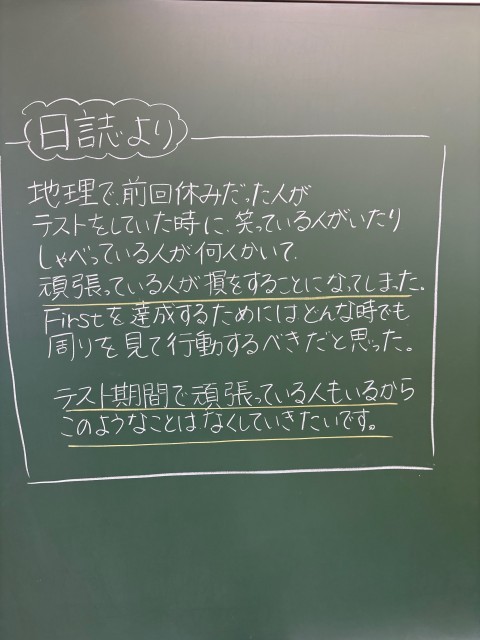 日誌より
地理で、前回休みだった人が
テストをしていた時に、笑っている人がいたり
しゃべっている人が何人かいて、
頑張っている人が損をすることになってしまった。
Firstを達成するためにはどんな時でも
周りを見て行動するべきだと思った。
テスト期間で頑張っている人もいるから
このようなことはなくしていきたいです。